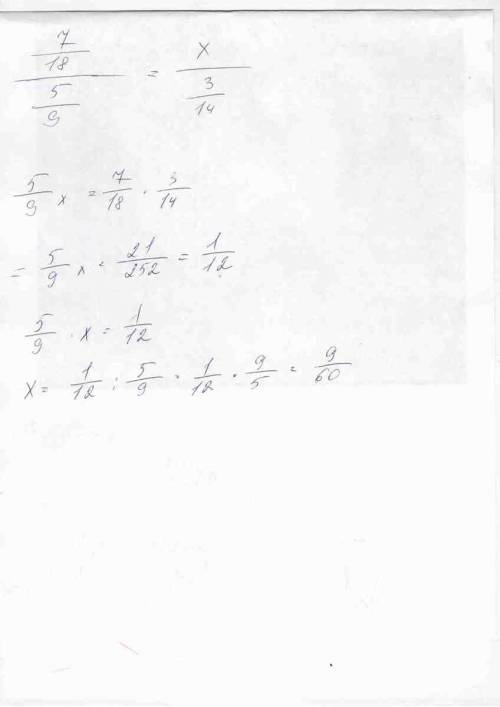 7/18 / 5/9 = x / 3/14
5/9 x = 7/18 · 3/14
= 5/9 x = 21/252 = 1/12
5/9 · x = 1/12
x = 1/12 : 5/9 = 1/12 · 9/5 = 9/60